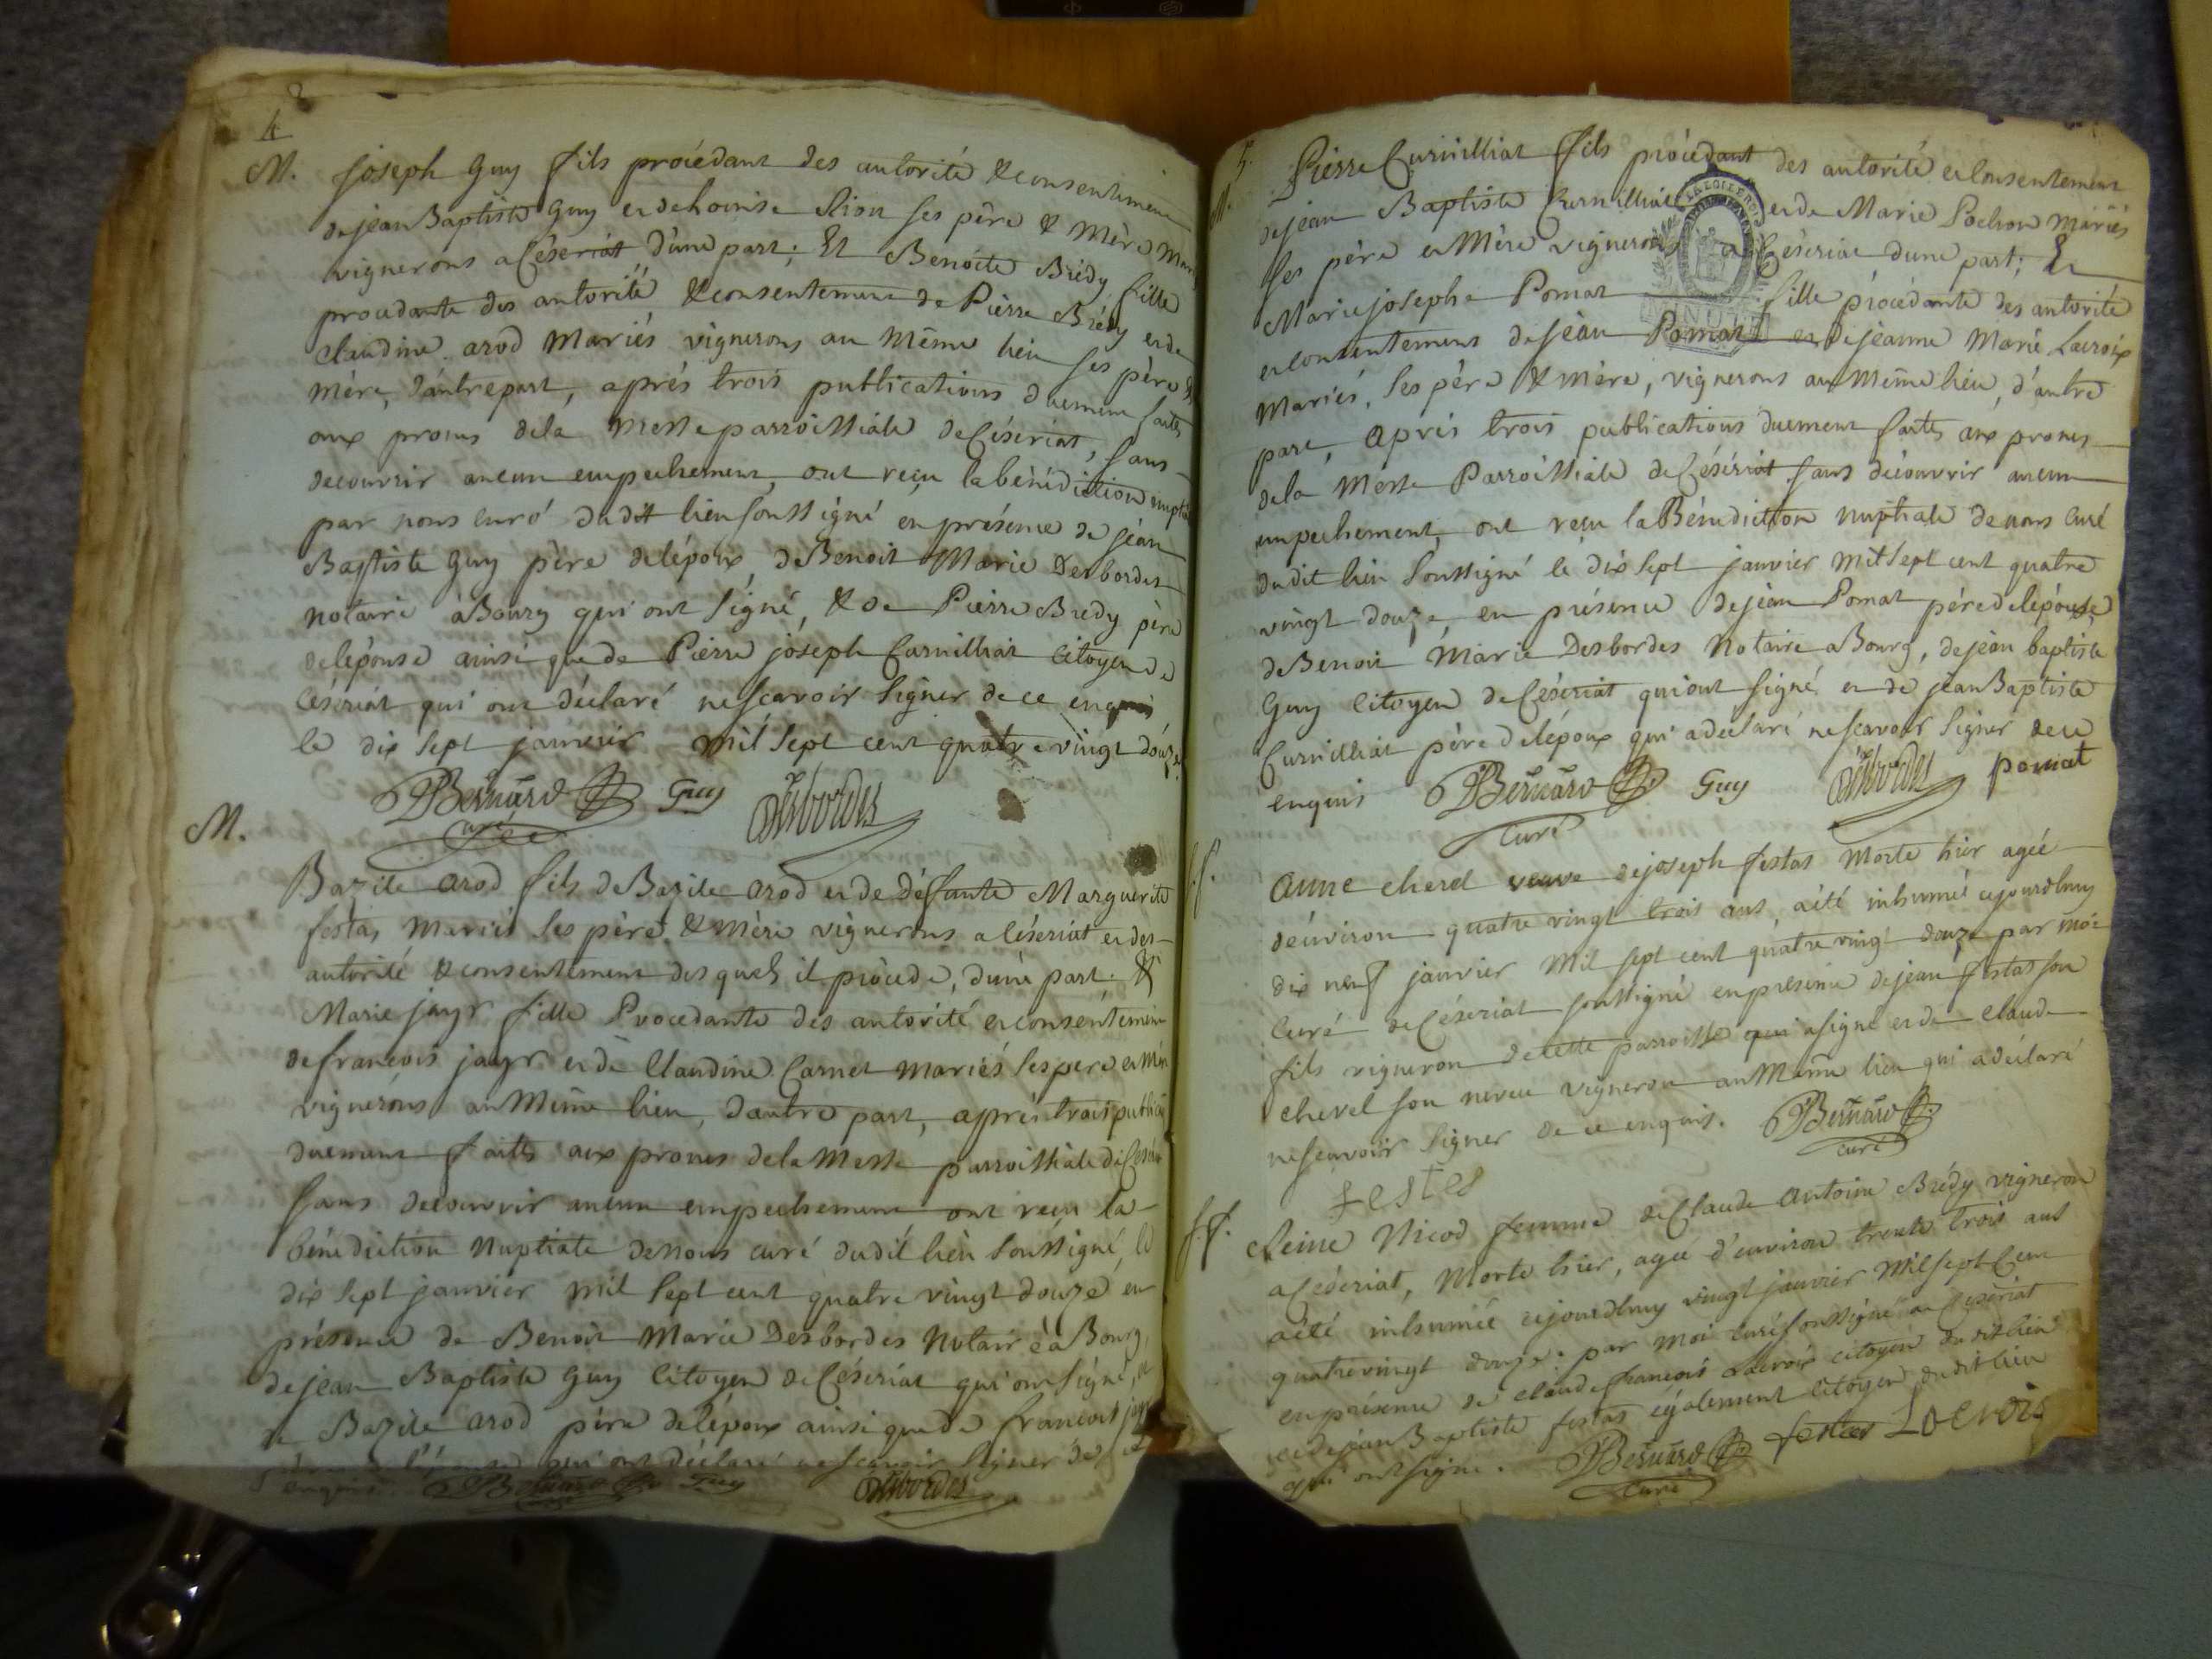 4
M. Joseph Guy fils procédant des autorité & consentement
de jean Baptiste Guy et de Louise Rion ses père & mère
vignerons a Céseriat d'une part; Et Benoite Brédy fille
procedante des autorité & consentement de Pierre Brédy et de
Claudine arod Mariés vignerons au Même lieu ses père &
mère, d'autre part, aprés trois publications duement faites
aux prones de la Messe parroissiale de Céseriat, sans
decouvrir aucun empechement, ont reçu la bénédiction
par nous curé dudit lieu soussigné en présence de jean
Baptiste Guy père de l'époux de Benoit Marie Desbordes
notaire à Bourg qui ont signé, & de Pierre Brédy père
de l'épouse ainsi que de Pierre joseph Curnilliat Citoyen de
Céseriat qui ont déclaré ne scavoir signer de ce enquis
le dix sept janvier mil sept cent quatre vingt douze.
Bernard Guy Desbordes
curé
M.
Bazile arod fils de Bazile arod et de défunte Marguerite
festas Mariés ses père & mère vignerons a Céseriat et des
autorité & consentement des quels il procede, d'une part; &
Marie jayr fille Procedante des autorité et consentement
de francois jayr et de Claudine Carnet mariés ses pere et
vignerons au Même lieu, d'autre part, aprés trois
duement faites aux prones de la Messe parroissiale de
sans decouvrir aucun empechement ont reçu la
bénediction Nuptiale de nous curé dudit lieu soussigné, le
dix sept janvier mil sept cent quatre vingt douze, en
présence de Benoit Marie Desbordes Notaire à Bourg
de jean Baptiste Guy Citoyen de Céseriat qui ont signé, &
de Bazile arod père de l'époux ainsi que de francois
père de l'épouse qui ont déclaré ne scavoir signer de ce
enquis. Bernard Guy Desbordes
5.
M. Pierre Curnilliat fils procedant des autorité et consentement
de jean Baptiste Curnilliat et de Marie Pochon Mariés
ses père et Mère vignerons a Céseriat d'une part; Et
Marie josephe Pomat fille procedante des autorité
et consentement de jean Pomat et de jeanne Marie Lacroix
Mariés, ses père & mère, vignerons au Même lieu, d'autre
part, Aprés trois publications duement faites aux prones
de la Messe Parroissiale de Céseriat sans découvrir aucun
empechement, ont reçu la Bénediction nuptiale de nous Curé
du dit lieu soussigné le dix sept janvier mil sept cent quatre
vingt douze, en présence de jean Pomat père de l'épouse,
de Benoit Marie Desbordes Notaire a Bourg, de jean baptiste
Guy Citoyen de Céseriat qui ont signé et de jean Baptiste
Curnilliat père de l'époux qui a declaré ne scavoir signer de ce
enquis Bernard Guy Desbordes pomat
Curé
f.f. anne cherel veuve de joseph festas Morte hier agée
d'environ quatre vingt trois ans, a été inhumée cejourdhuy
dix neuf janvier Mil sept cent quatre vingt douze par moi
Curé de Céseriat soussigné en presence de jean festas son
fils vigneron de cette parroisse qui a signé et de Claude
cherel son neveu vigneron au Même lieu qui a déclaré
ne scavoir signer de ce enquis. Bernard
festes curé
f.f. Reine Nicod femme de Claude Antoine Brédy vigneron
a Céseriat, Morte hier, agée d'environ trente trois ans
a été inhumée cejourdhuy vingt janvier Mil sept Cent
quatre vingt douze; par moi curé soussigné de Céseriat
en présence de claude francois Lacroix citoyen du dit lieu
et de jean Baptiste festas également Citoyen du dit lieu
qui ont signé. Bernard festas Lacroix
curé